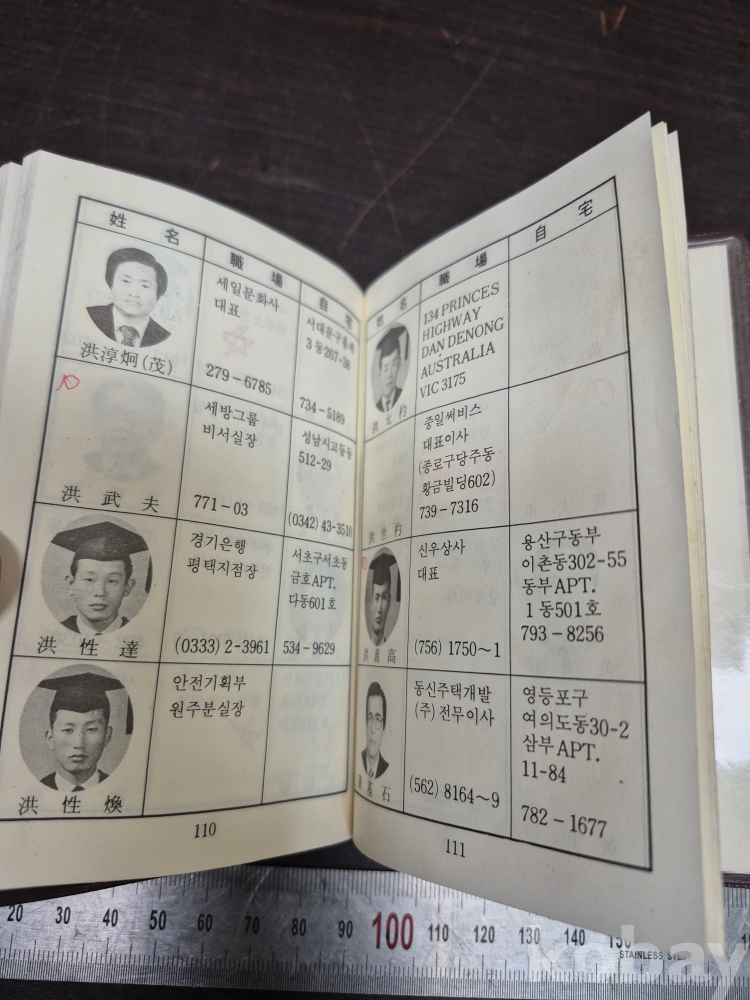 姓 名
職 場
自
洪淳炯(茂)
세일문화사
대표
279-6785
서대문구홍제
3동267-38
734-5189
洪武夫
세방그룹
비서실장
771-03
성남시고등동
512-29
(0342) 43-3510
洪性達
경기은행
평택지점장
(0333) 2-3961
서초구서초동
금호APT.
다동601호
534-9629
洪性煥
안전기획부
원주분실장
110
姓 名
職 場
自 宅
洪元杓
134 PRINCES
HIGHWAY
DAN DENONG
AUSTRALIA
VIC 3175
洪世杓
중일써비스
대표이사
(종로구당주동
황금빌딩602)
739-7316
洪義高
신우상사
대표
(756) 1750~1
용산구동부
이촌동302-55
동부APT.
1동501호
793-8256
基石
동신주택개발
(주) 전무이사
(562) 8164~9
영등포구
여의도동30-2
삼부APT.
11-84
782-1677
111
20 30 40 50 60 70 80 90 100 110 120 130 140 150
STAINLESS STEEL
kobay